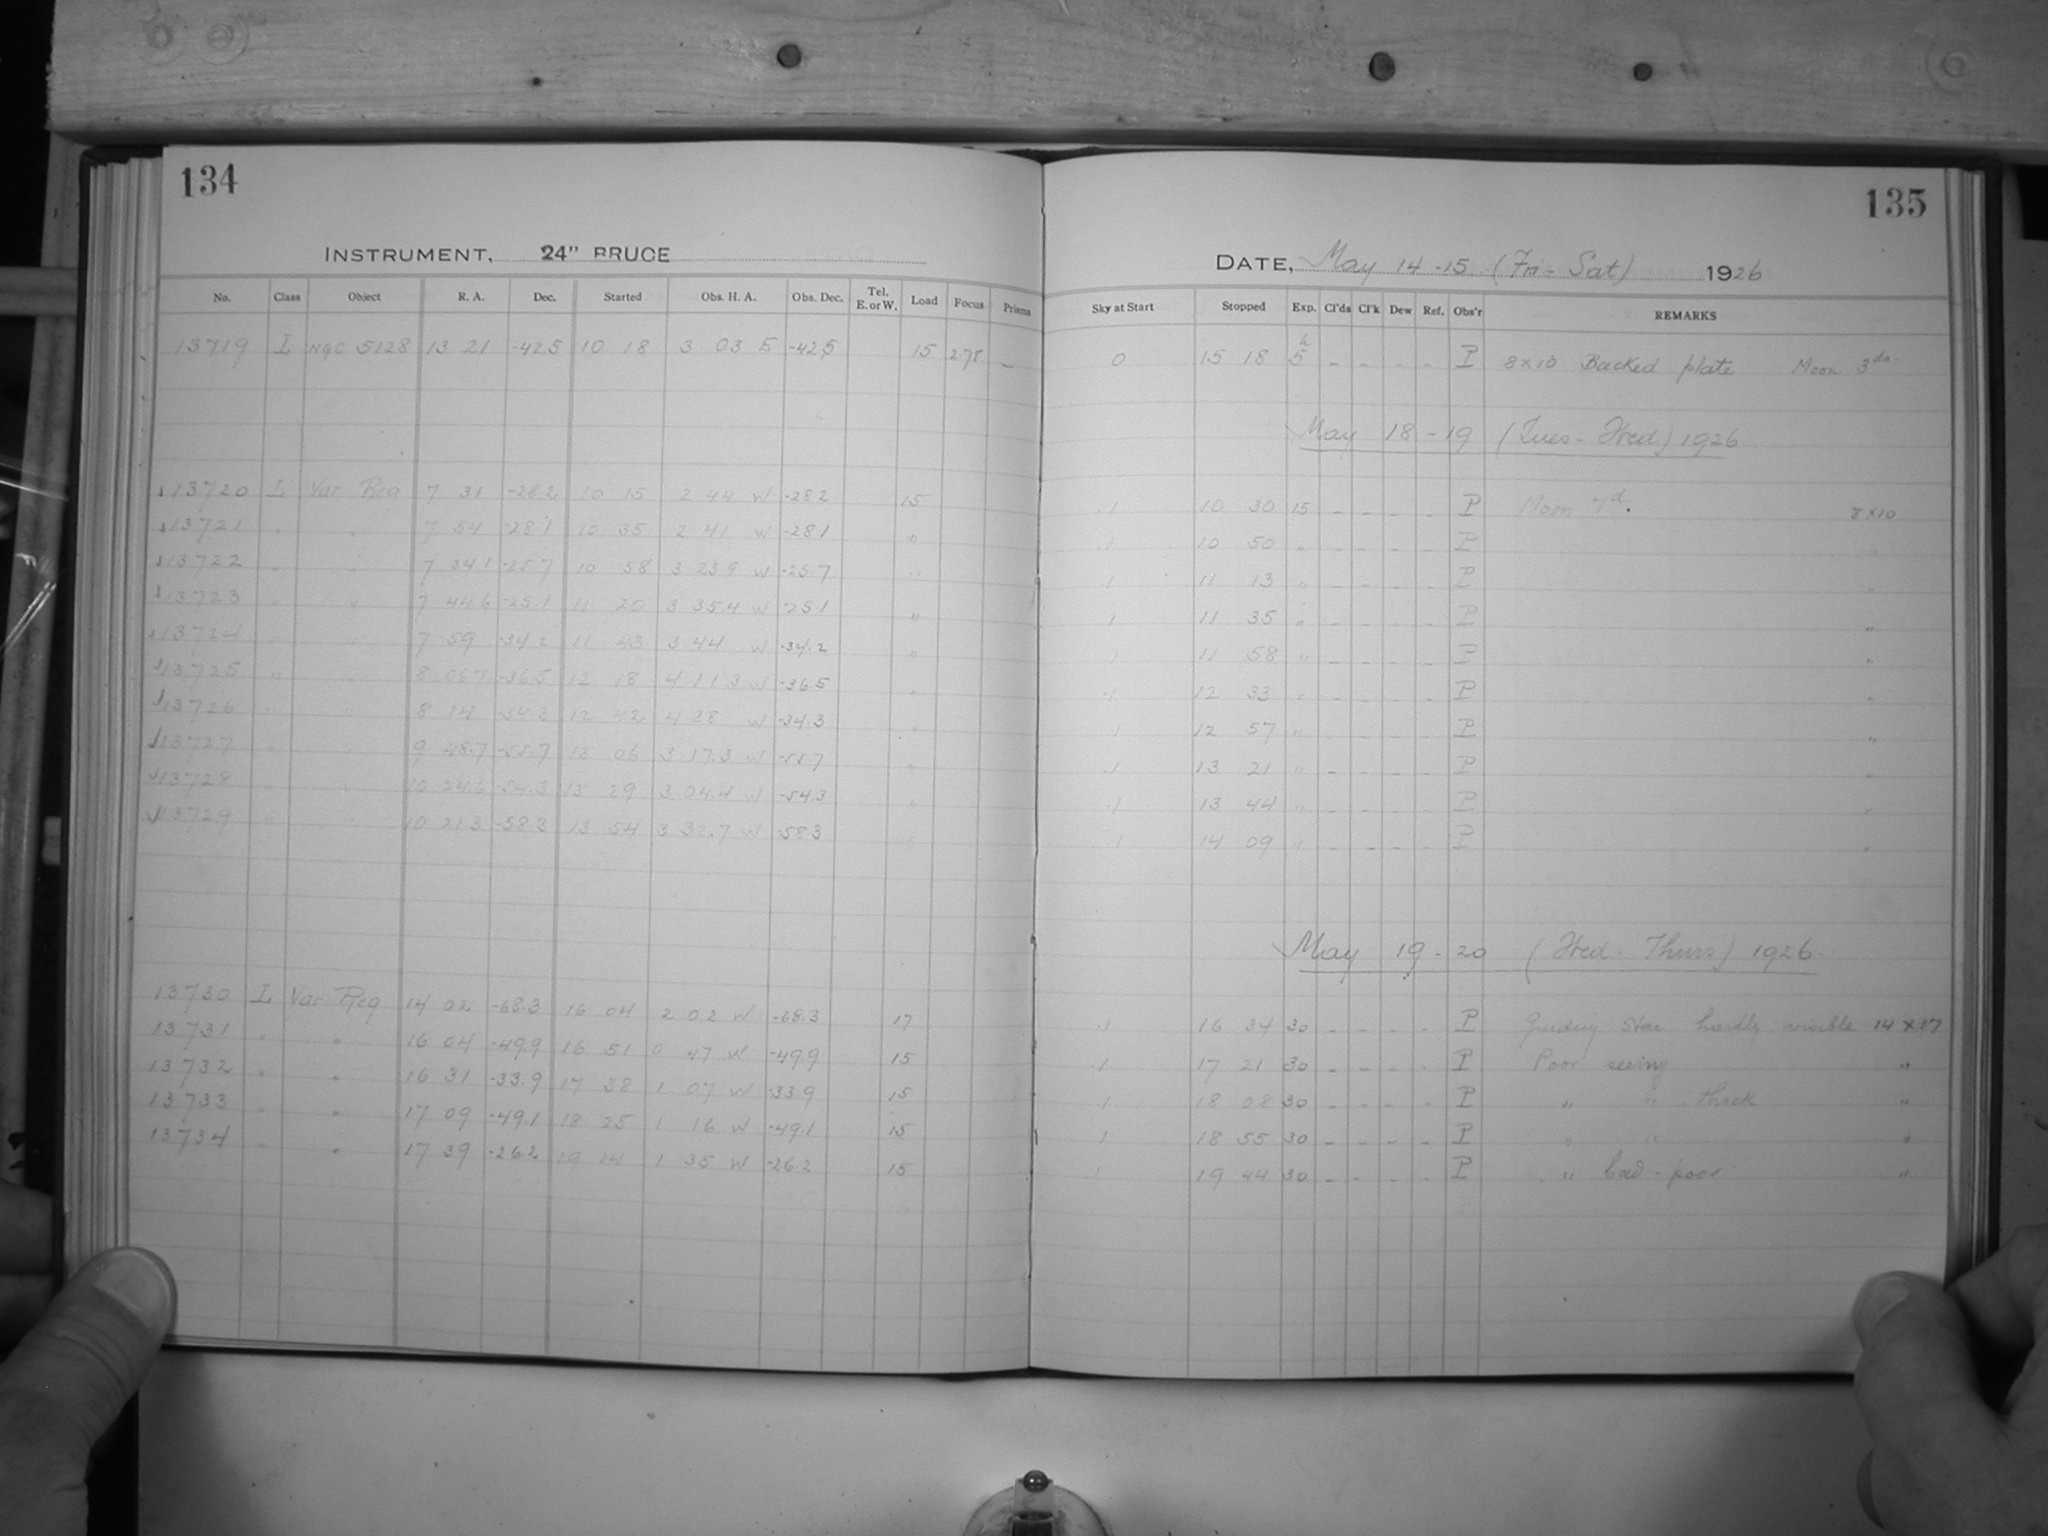 134
135
INSTRUMENT, 24" BRUCE
DATE, May 14-15 (Fri-Sat) 1926
No. Class Object R. A. Dec. Started Obs. H. A. Obs. Dec. Tel. E. or W. Load Focus Prisms Sky at Start Stopped Exp. Cl'ds Cl'k Dew Ref. Obs'r REMARKS
13719 L NGC 5128 13 21 -42.5 10 18 3 03 E -42.5 15 2.78 — 0 15 18 5h - - - - P 8x10 Backed plate Moon 3da.
May 18-19 (Tues-Wed) 1926
13720 L Var Reg 7 31 -28.2 10 15 2 44 W -28.2 15 .1 10 30 15 - - - - P Moon 7d. 8x10
13721 " " 7 54 -28.1 10 35 2 41 W -28.1 " .1 10 50 " - - - - P "
13722 " " 7 34.1 -25.7 10 58 3 23.9 W -25.7 " .1 11 13 " - - - - P "
13723 " " 7 44.6 -25.1 11 20 3 35.4 W -25.1 " .1 11 35 " - - - - P "
13724 " " 7 59 -34.2 11 43 3 44 W -34.2 " .1 11 58 " - - - - P "
13725 " " 8 06.7 -36.5 12 18 4 11.3 W -36.5 " .1 12 33 " - - - - P "
13726 " " 8 14 -34.3 12 42 4 28 W -34.3 " .1 12 57 " - - - - P "
13727 " " 9 48.7 -55.7 13 06 3 17.3 W -55.7 " .1 13 21 " - - - - P "
13728 " " 10 24.6 -54.3 13 29 3 04.4 W -54.3 " .1 13 44 " - - - - P "
13729 " " 10 21.3 -58.3 13 54 3 32.7 W -58.3 " .1 14 09 " - - - - P "
May 19-20 (Wed-Thurs) 1926
13730 L Var Reg 14 02 -68.3 16 04 2 02 W -68.3 17 .1 16 34 30 - - - - P Guiding star hardly visible 14x17
13731 " " 16 04 -49.9 16 51 0 47 W -49.9 15 .1 17 21 30 - - - - P Poor seeing "
13732 " " 16 31 -33.9 17 38 1 07 W -33.9 15 .1 18 08 30 - - - - P " " thick "
13733 " " 17 09 -49.1 18 25 1 16 W -49.1 15 .1 18 55 30 - - - - P " " "
13734 " " 17 39 -26.2 19 14 1 35 W -26.2 15 .1 19 44 30 - - - - P " bad-poor "